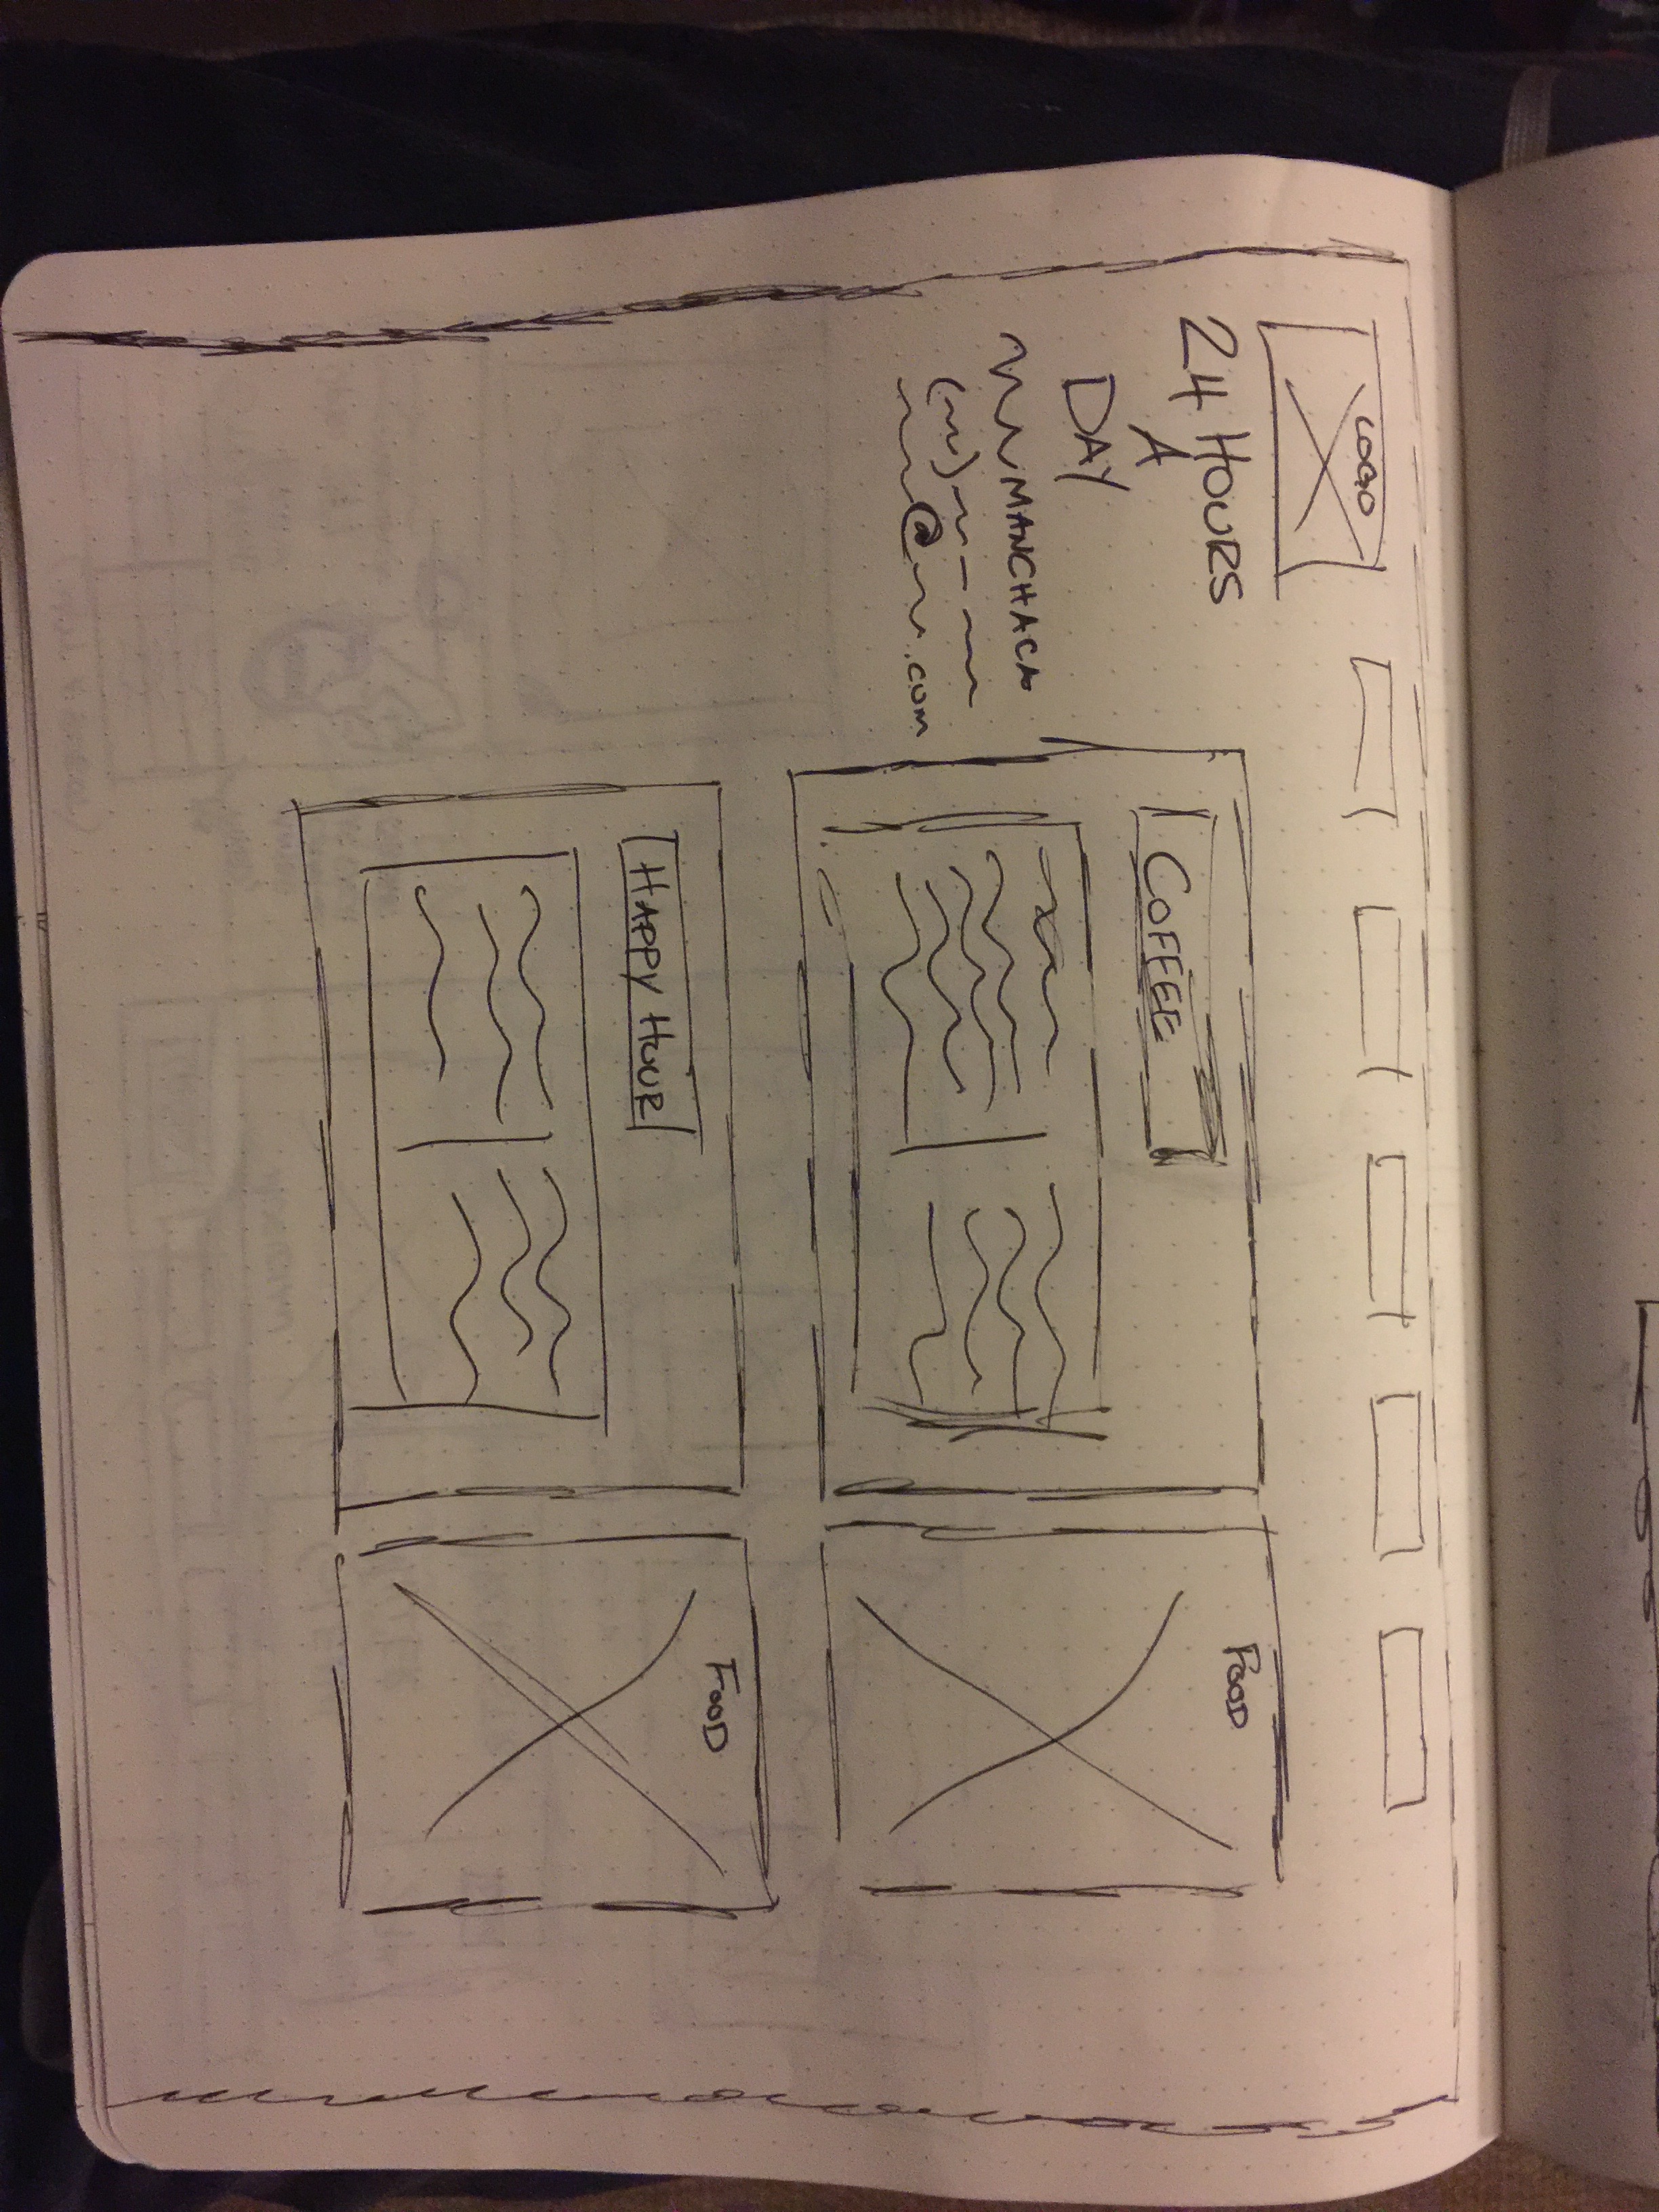 LOGO
24 HOURS
A
DAY
MANCHACA
( ) -
@ .com
COFFEE
FOOD
HAPPY HOUR
FOOD